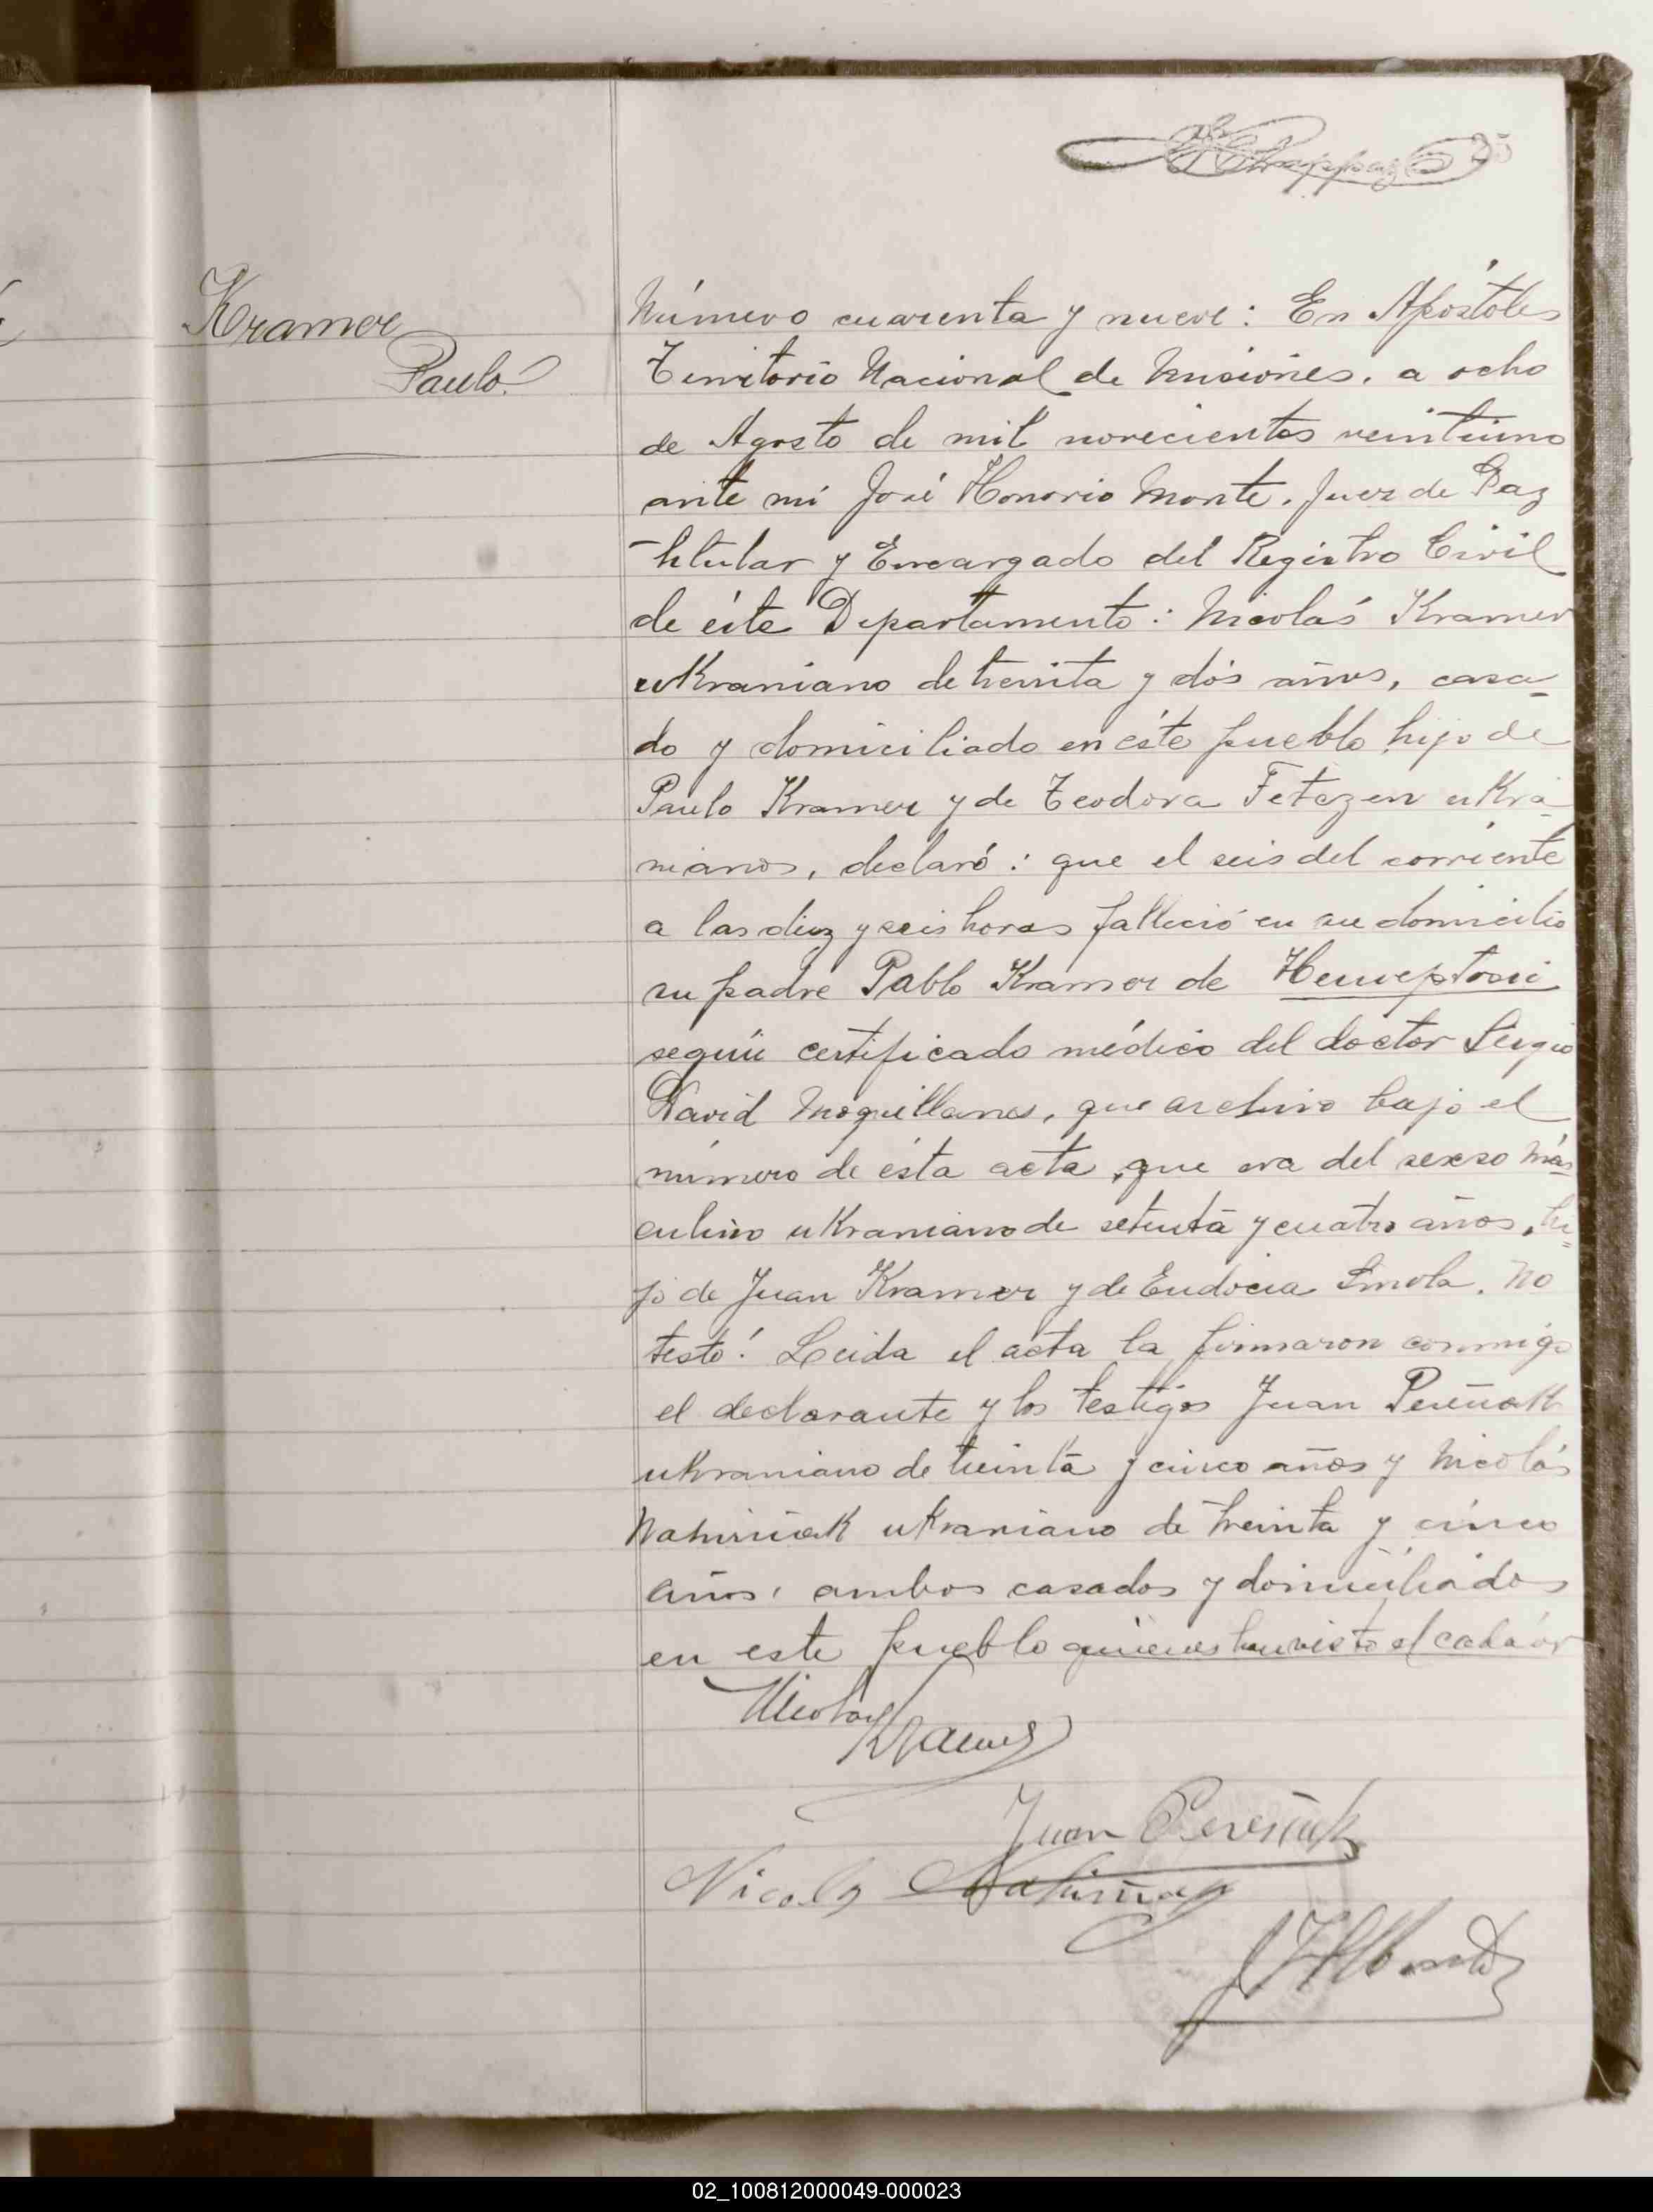 25
Kramer
Paulo
Número cuarenta y nueve: En Apóstoles
Territorio Nacional de Misiones, a ocho
de Agosto de mil novecientos veintiuno
ante mí José Honorio Monte, Juez de Paz
titular y Encargado del Registro Civil
de éste Departamento: Nicolás Kramer
ukraniano de treinta y dós años, casa-
do y domiciliado en éste pueblo, hijo de
Paulo Kramer y de Teodora Fetezen ukra-
nianos, declaró: que el seis del corriente
a las diez y seis horas falleció en su domicilio
su padre Pablo Kramer de Hemoptosii
según certificado médico del doctor Sergio
David Moguillanes, que archivo bajo el
número de ésta acta, que era del sexso más
culino ukraniano de setenta y cuatro años, hi=
jo de Juan Kramer y de Eudocia Smola. No
testó! Leida el acta la firmaron conmigo
el declarante y los testigos Juan Pereñak
ukraniano de treinta y cinco años y Nicolás
Nahirñak ukraniano de treinta y cinco
años, ambos casados y domiciliados
en este pueblo quienes han visto el cadáver
Nicolas
Kramer
Juan Pereñuk
Nicolas Nahirñak
J H Monte
02_100812000049-000023